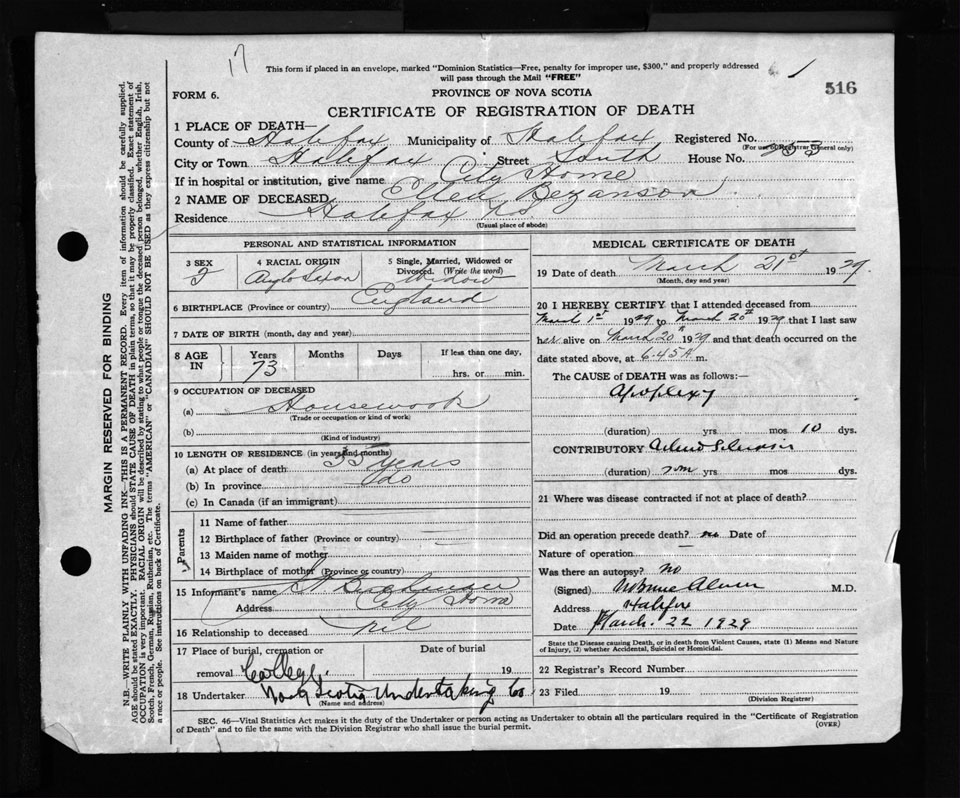 17
This form if placed in an envelope, marked "Dominion Statistics—Free, penalty for improper use, $300," and properly addressed
will pass through the Mail "FREE"
1
516
FORM 6.
PROVINCE OF NOVA SCOTIA
CERTIFICATE OF REGISTRATION OF DEATH
1 PLACE OF DEATH—
County of Halifax Municipality of Halifax Registered No.
(For use of Registrar General only)
City or Town Halifax Street South House No.
If in hospital or institution, give name City Home
2 NAME OF DECEASED Ellen Bezanson
Residence Halifax NS
(Usual place of abode)
PERSONAL AND STATISTICAL INFORMATION
3 SEX
F
4 RACIAL ORIGIN
Anglo Saxon
5 Single, Married, Widowed or
Divorced. (Write the word)
Widow
6 BIRTHPLACE (Province or country) England
7 DATE OF BIRTH (month, day and year)
8 AGE IN
Years
73
Months
Days
If less than one day,
hrs. or min.
9 OCCUPATION OF DECEASED
(a) Housework
(Trade or occupation or kind of work)
(b)
(Kind of industry)
10 LENGTH OF RESIDENCE (in years and months)
(a) At place of death 35 years
(b) In province do
(c) In Canada (if an immigrant)
Parents
11 Name of father
12 Birthplace of father (Province or country)
13 Maiden name of mother
14 Birthplace of mother (Province or country)
15 Informant's name
Address City Home
16 Relationship to deceased nil
17 Place of burial, cremation or
removal College.
Date of burial
19
18 Undertaker Nova Scotia Undertaking Co
(Name and address)
MEDICAL CERTIFICATE OF DEATH
19 Date of death March 21st 1929
(Month, day and year)
20 I HEREBY CERTIFY that I attended deceased from
March 1st 1929 to March 20th 1929 that I last saw
her alive on March 20th 1929 and that death occurred on the
date stated above, at 6.45 A m.
The CAUSE of DEATH was as follows:—
Apoplexy
(duration) yrs mos 10 dys.
CONTRIBUTORY
(duration) yrs mos dys.
21 Where was disease contracted if not at place of death?
Did an operation precede death? no Date of
Nature of operation
Was there an autopsy? no
(Signed) M.D.
Address Halifax
Date March. 22 1929
State the Disease causing Death, or in death from Violent Causes, state (1) Means and Nature
of Injury, (2) whether Accidental, Suicidal or Homicidal.
22 Registrar's Record Number
23 Filed 19
(Division Registrar)
SEC. 46—Vital Statistics Act makes it the duty of the Undertaker or person acting as Undertaker to obtain all the particulars required in the "Certificate of Registration
of Death" and to file the same with the Division Registrar who shall issue the burial permit.
(OVER)
MARGIN RESERVED FOR BINDING
N.B.—WRITE PLAINLY WITH UNFADING INK—THIS IS A PERMANENT RECORD. Every item of information should be carefully supplied.
AGE should be stated EXACTLY. PHYSICIANS should STATE CAUSE OF DEATH in plain terms, so that it may be properly classified. Exact statement of
OCCUPATION is very important. RACIAL ORIGIN will be described by stating to what people or tongue the deceased person belonged, whether English, Irish,
Scotch, French, German, Russian, Ruthenian, etc. The terms "AMERICAN" or "CANADIAN" SHOULD NOT BE USED as they express citizenship but not
a race or people. See instructions on back of Certificate.